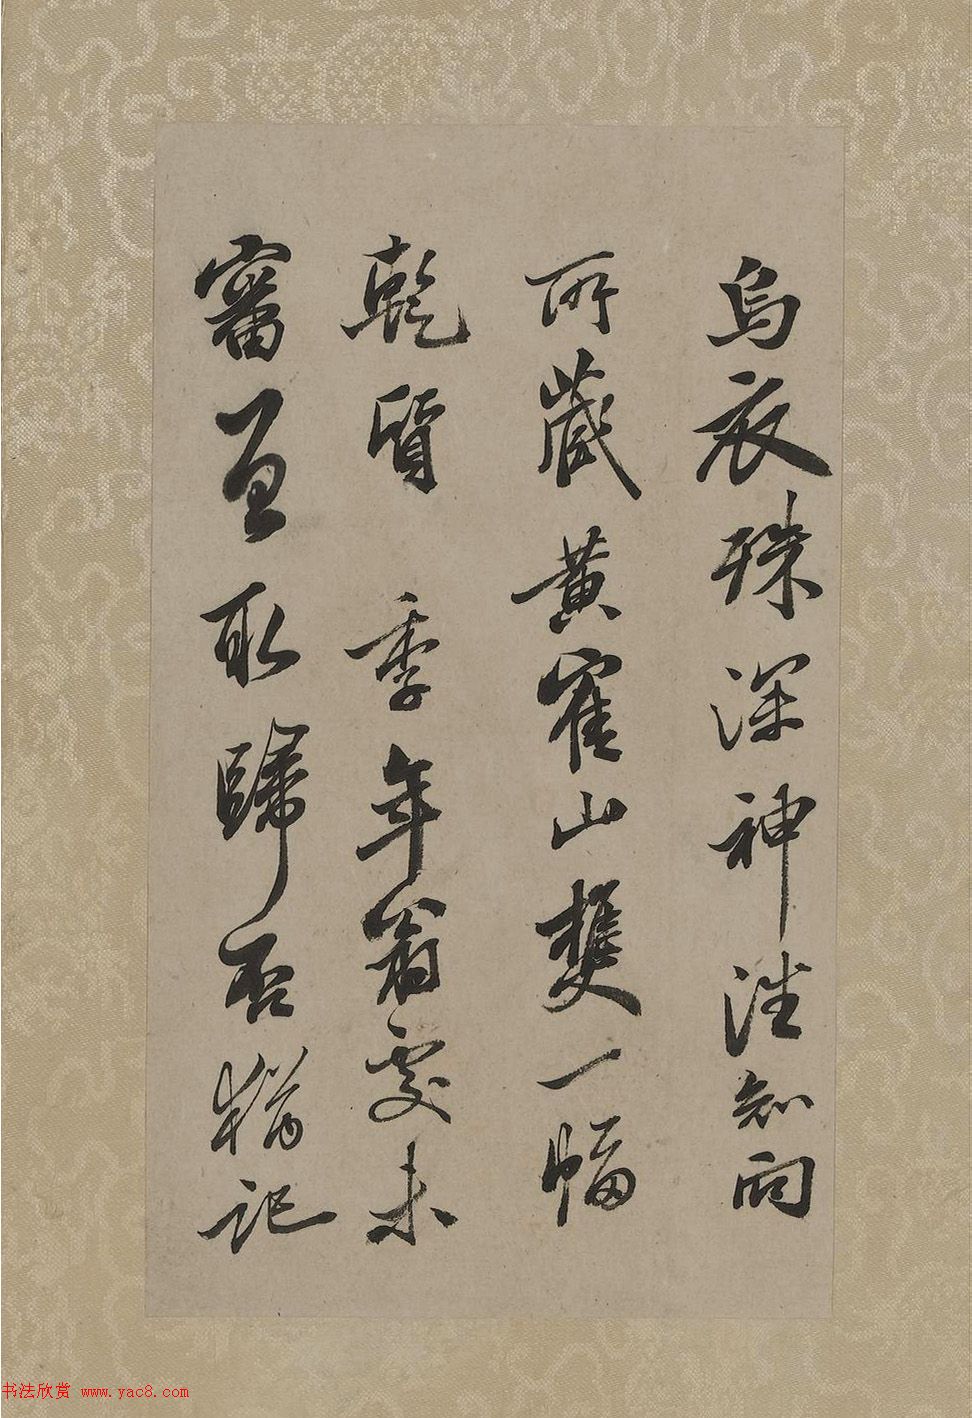 烏衣殊深神注知向
所藏黃隺山樵一幅
乾質季年翁處未
審互取歸否猶記
书法欣赏 www.yac8.com